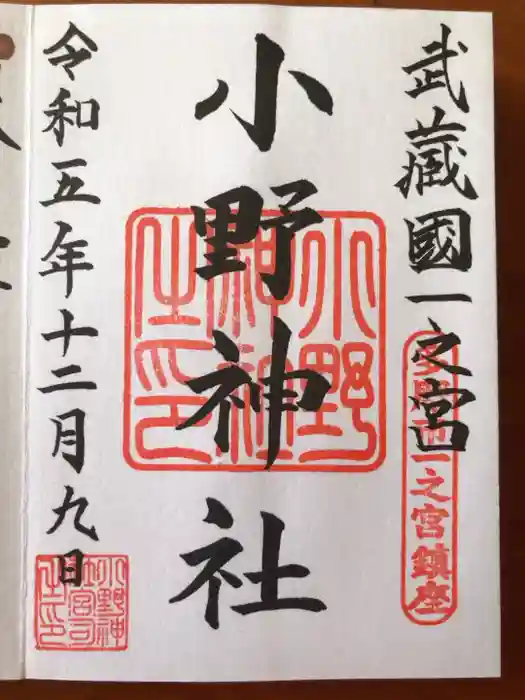 武藏國一之宮
多摩市一之宮鎮座
小野神社
小野
神社
之印
令和五年十二月九日
小野神
社宮司
之印